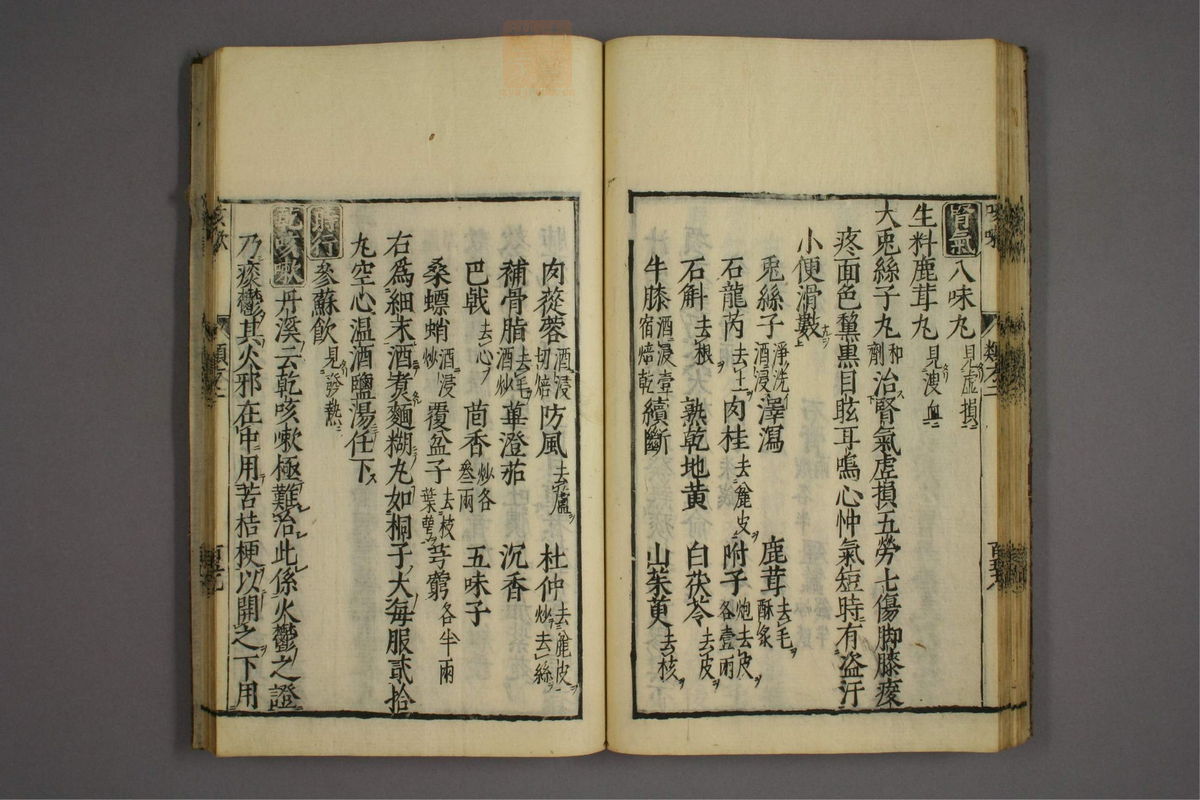 腎氣 八味丸見虛損ニ
生料鹿茸丸見溲血ニ
大兎絲子丸和劑治腎氣虛損五勞七傷脚膝痠
疼面色黧黑目眩耳鳴心忡氣短時有盗汗
小便滑數
兎絲子淨洗酒浸 澤瀉 鹿茸去毛酥炙
石龍芮去土 肉桂去麄皮 附子炮去皮各壹兩
石斛去根 熟乾地黄 白茯苓去皮
牛膝酒浸壹宿焙乾 續斷 山茱萸去核
肉蓯蓉酒浸切焙 防風去蘆 杜仲去麄皮炒去絲
補骨脂去毛酒炒 蓽澄茄 沉香
巴戟去心 茴香炒各叁兩 五味子
桑螵蛸酒浸炒 覆盆子去枝葉萼 芎藭各半兩
右爲細末酒煑麵糊丸如桐子大每服貳拾
丸空心温酒鹽湯任下
時行 參蘇飲見發熱ニ
乾咳嗽 丹溪云乾咳嗽極難治此係火鬱之證
乃痰鬱其火邪在中用苦桔梗以開之下用